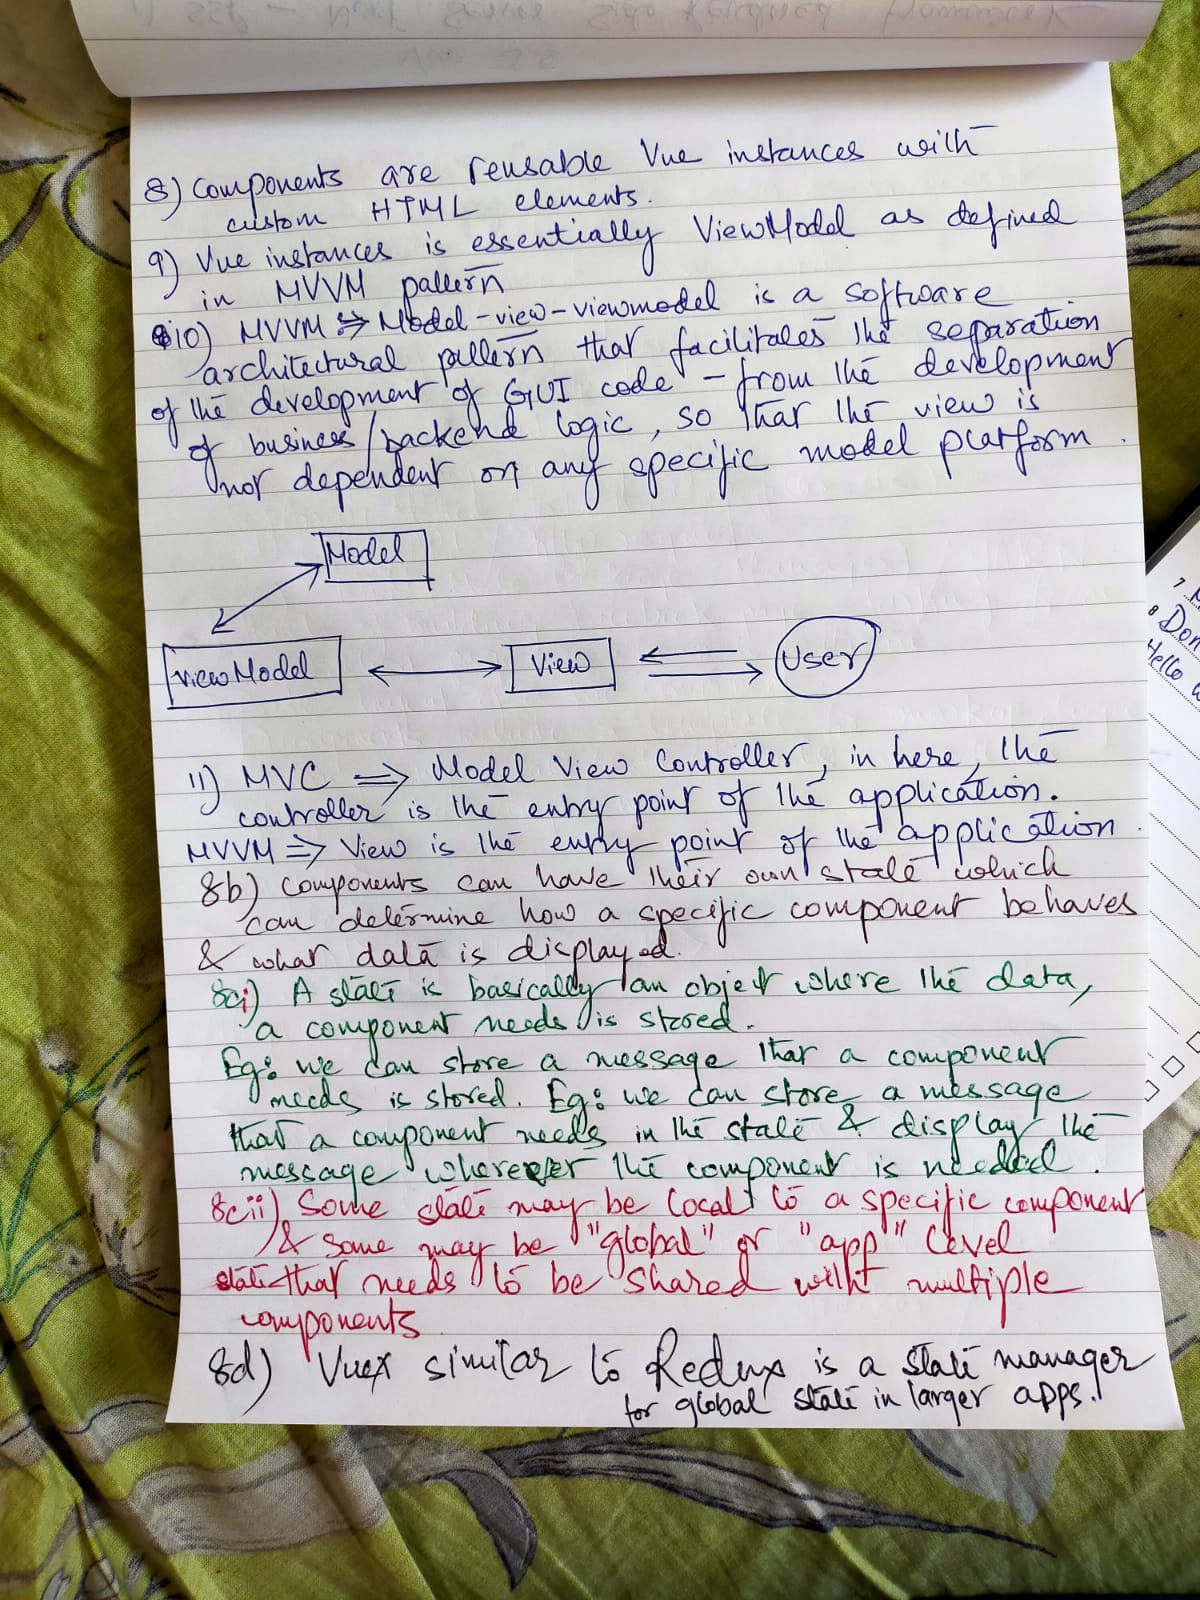 8) Components are reusable Vue instances with
custom HTML elements.
9) Vue instances is essentially ViewModel as defined
in MVVM pattern
10) MVVM => Model-view-viewmodel is a software
architectural pattern that facilitates the separation
of the development of GUI code - from the development
of business/backend logic, so that the view is
not dependent on any specific model platform.
Model
ViewModel
View
User
11) MVC => Model View Controller, in here, the
controller is the entry point of the application.
MVVM => View is the entry point of the application.
8b) Components can have their own state which
can determine how a specific component behaves
& what data is displayed.
8ci) A state is basically an object where the data,
a component needs is stored.
Eg: we can store a message that a component
needs is stored. Eg: we can store a message
that a component needs in the state & display the
message wherever the component is needed.
8cii) Some state may be local to a specific component
& some may be "global" or "app" level
state that needs to be shared with multiple
components
8d) Vuex similar to Redux is a state manager
for global state in larger apps.
7
8 Don
Hello